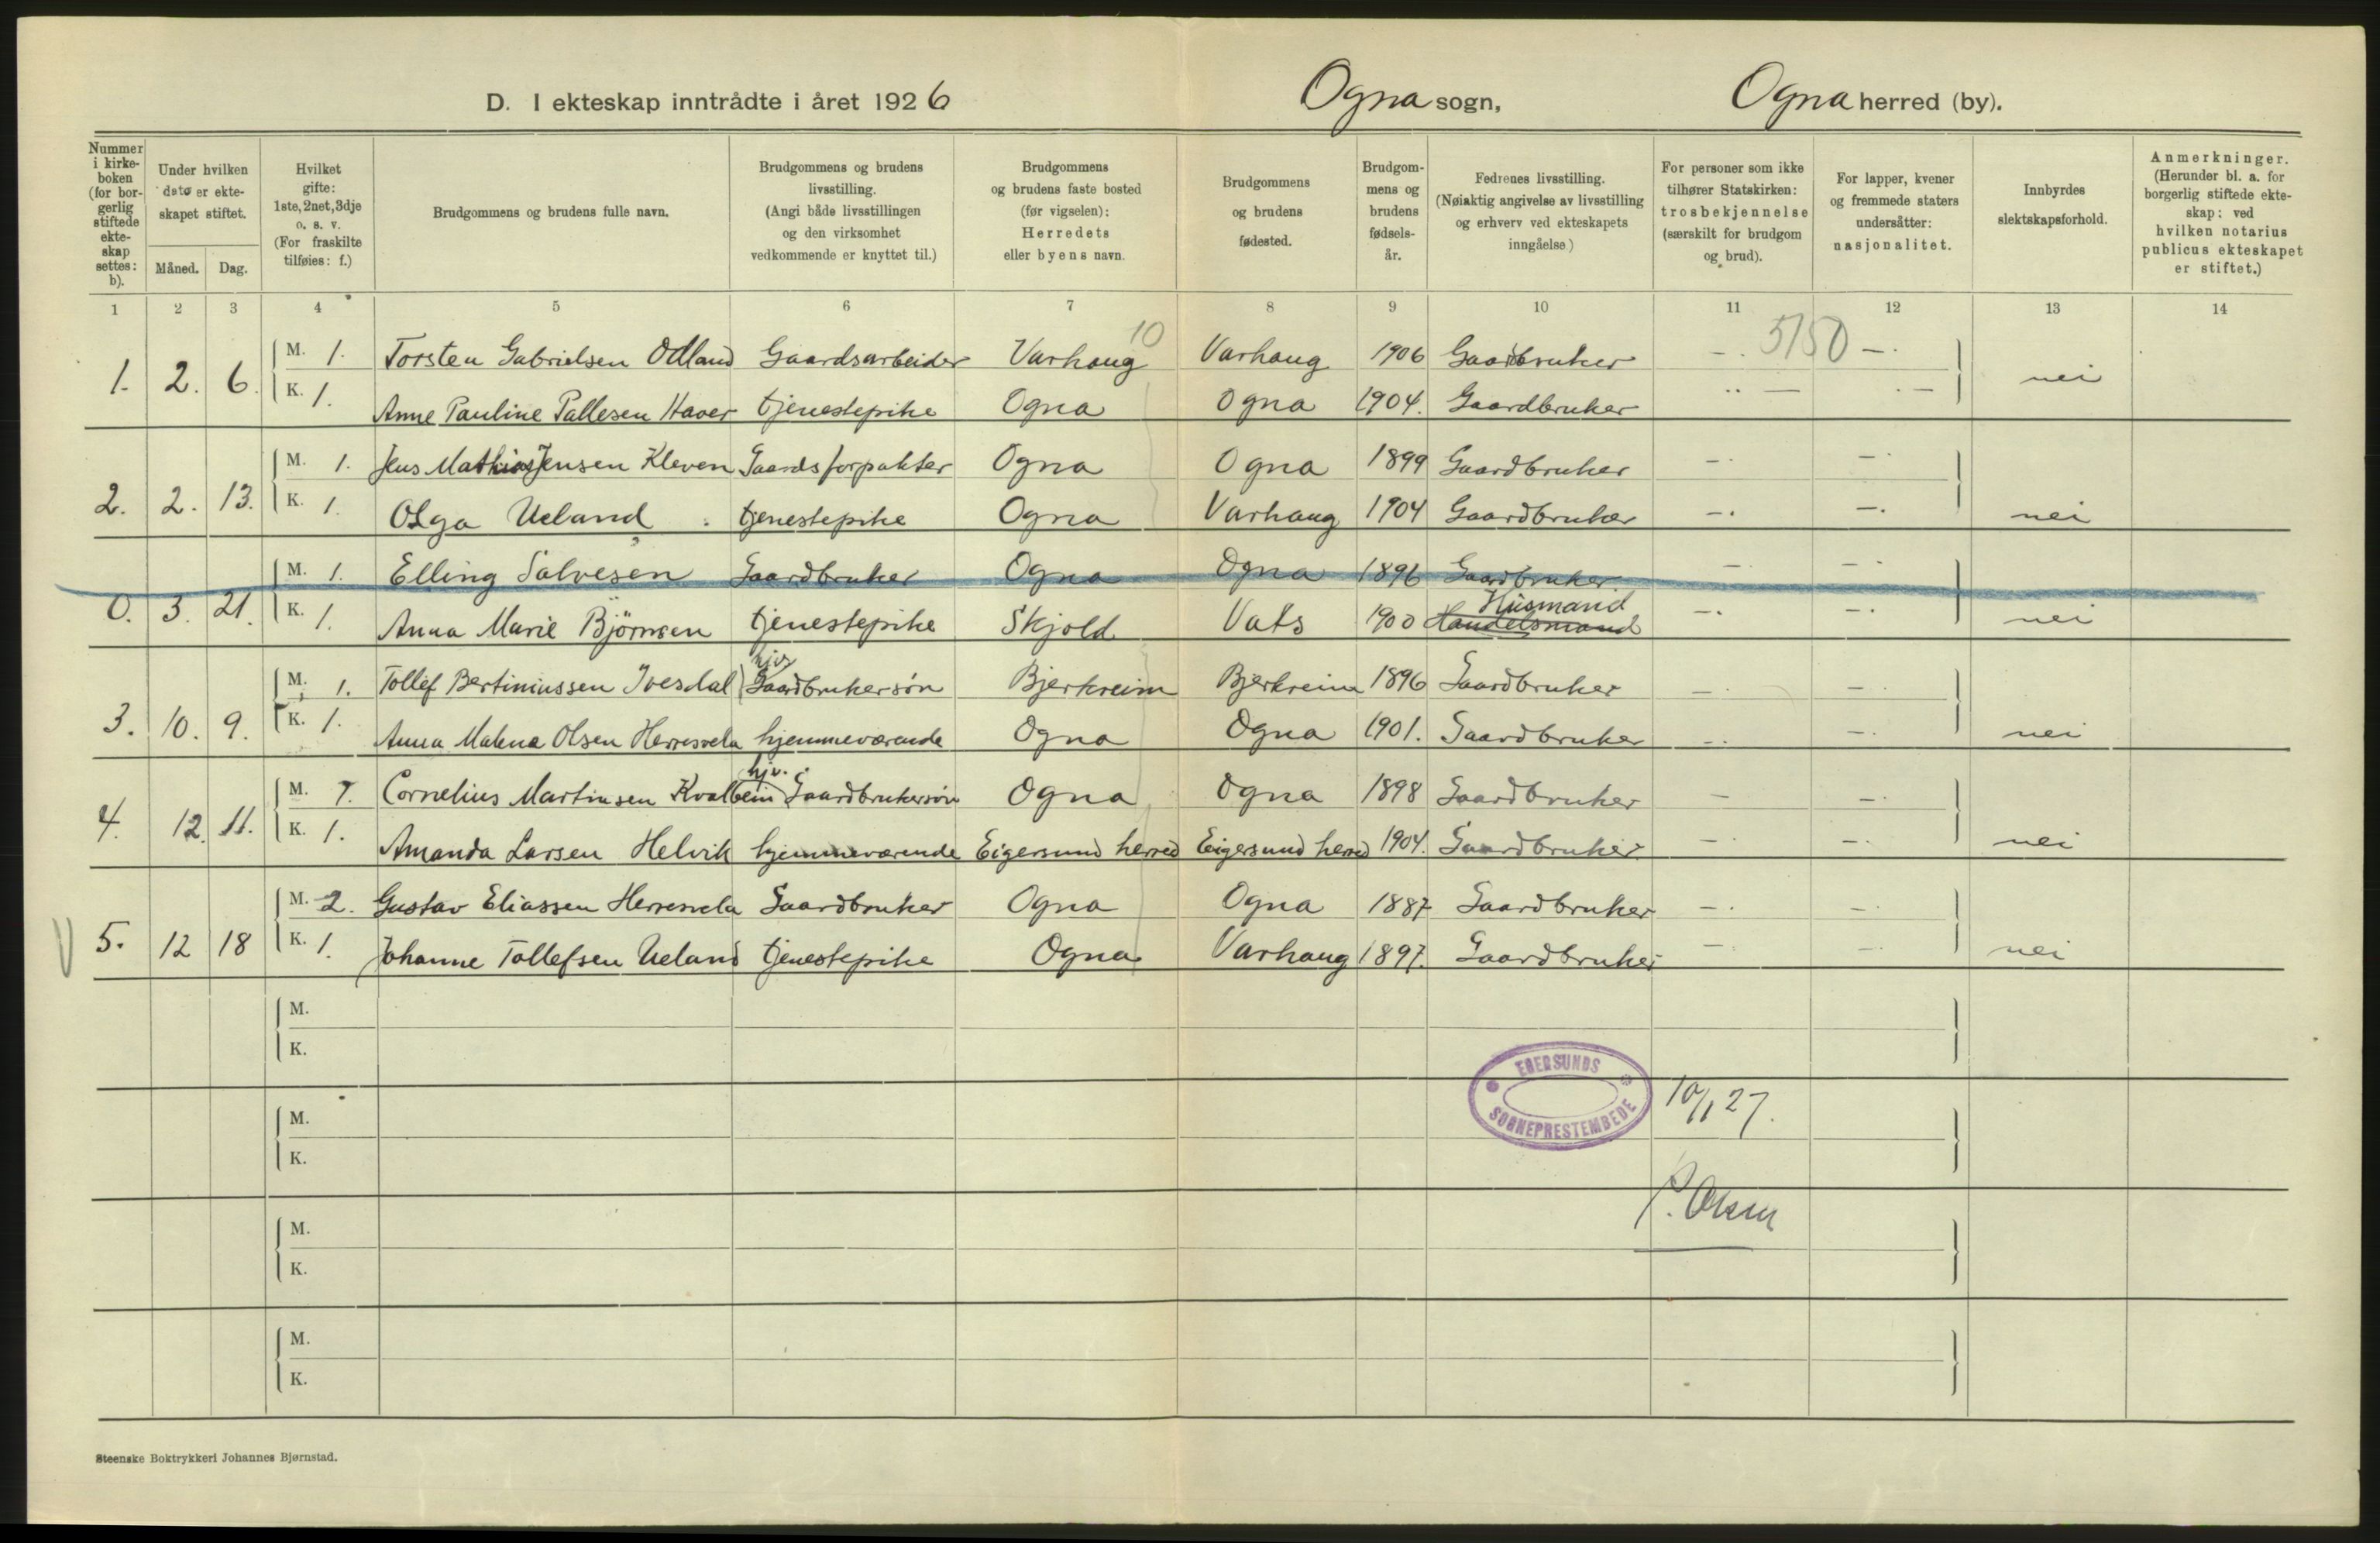 D. I ekteskap inntrådte i året 1926 Ogna sogn, Ogna herred (by).
Nummer i kirke- boken (for bor- gerlig stiftede ekte- skap settes: b).
Under hvilken dato er ekte- skapet stiftet.
Måned. Dag.
Hvilket gifte: 1ste, 2net, 3dje o. s. v. (For fraskilte tilføies: f.)
Brudgommens og brudens fulle navn.
Brudgommens og brudens livsstilling. (Angi både livsstillingen og den virksomhet vedkommende er knyttet til.)
Brudgommens og brudens faste bosted (før vigselen): Herredets eller byens navn.
Brudgommens og brudens fødested.
Brudgom- mens og brudens fødsels- år.
Fedrenes livsstilling. (Nøiaktig angivelse av livsstilling og erhverv ved ekteskapets inngåelse.)
For personer som ikke tilhører Statskirken: trosbekjennelse (særskilt for brudgom og brud).
For lapper, kvener og fremmede staters undersåtter: nasjonalitet.
Innbyrdes slektskapsforhold.
Anmerkninger. (Herunder bl. a. for borgerlig stiftede ekte- skap: ved hvilken notarius publicus ekteskapet er stiftet.)
1 2 3 4 5 6 7 8 9 10 11 12 13 14
10 5150
M. 1. Torsten Gabrielsen Odland Gaardsarbeider Varhaug Varhaug 1906 Gaardbruker —. —.
1. 2. 6. K. 1. Anne Pauline Pallesen Haver tjenestepike Ogna Ogna 1904. Gaardbruker — — nei
M. 1. Jens Mathias Jensen Kleven Gaardsforpakter Ogna Ogna 1899 Gaardbruker —. —.
2. 2. 13. K. 1. Olga Ueland tjenestepike Ogna Varhaug 1904 Gaardbruker —. —. nei
M. 1. Elling Salvesen Gaardbruker Ogna Ogna 1896 Gaardbruker —. —.
Husmand
0. 3. 21. K. 1. Anna Marie Björnsen tjenestepike Skjold Vats 1900 Handelsmand —. —. nei
hjv
M. 1. Tollef Bertiniussen Ivesdal Gaardbrukersøn Bjerkreim Bjerkreim 1896 Gaardbruker —. —.
3. 10. 9. K. 1. Anna Malena Olsen Herresvela hjemmeværende Ogna Ogna 1901. Gaardbruker —. —. nei
hjv.
M. 1. Cornelius Martinsen Kvalbein Gaardbrukersøn Ogna Ogna 1898 Gaardbruker — —.
4. 12. 11. K. 1. Amanda Larsen Helvik hjemmeværende Eigersund herred Eigersund herred 1904. Gaardbruker —. —. nei
M. 2. Gustav Eliassen Herresvela Gaardbruker Ogna Ogna 1887 Gaardbruker —. —.
V 5. 12 18 K. 1. Johanne Tollefsen Ueland tjenestepike Ogna Varhaug 1897. Gaardbruker —. —. nei
M.
K.
EGERSUNDS SOGNEPRESTEMBEDE
10/1 27.
M.
K.
P. Olsen
M.
K.
M.
K.
Steenske Boktrykkeri Johannes Bjørnstad.